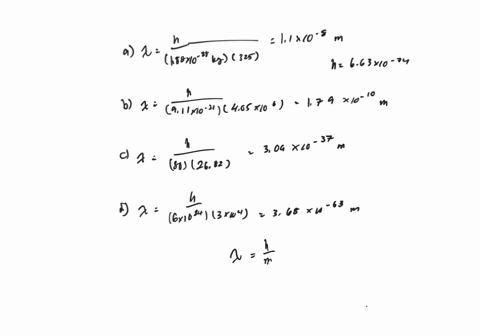 a) λ = h / (1.88×10⁻²⁸ kg)(325) = 1.1×10⁻⁸ m
h = 6.63×10⁻³⁴
b) λ = h / (9.11×10⁻³¹)(4.05×10⁶) = 1.79 ×10⁻¹⁰ m
c) λ = h / (80)(26.82) = 3.09 ×10⁻³⁷ m
d) λ = h / (6×10²⁴)(3×10⁴) = 3.68 ×10⁻⁶³ m
λ = h / m